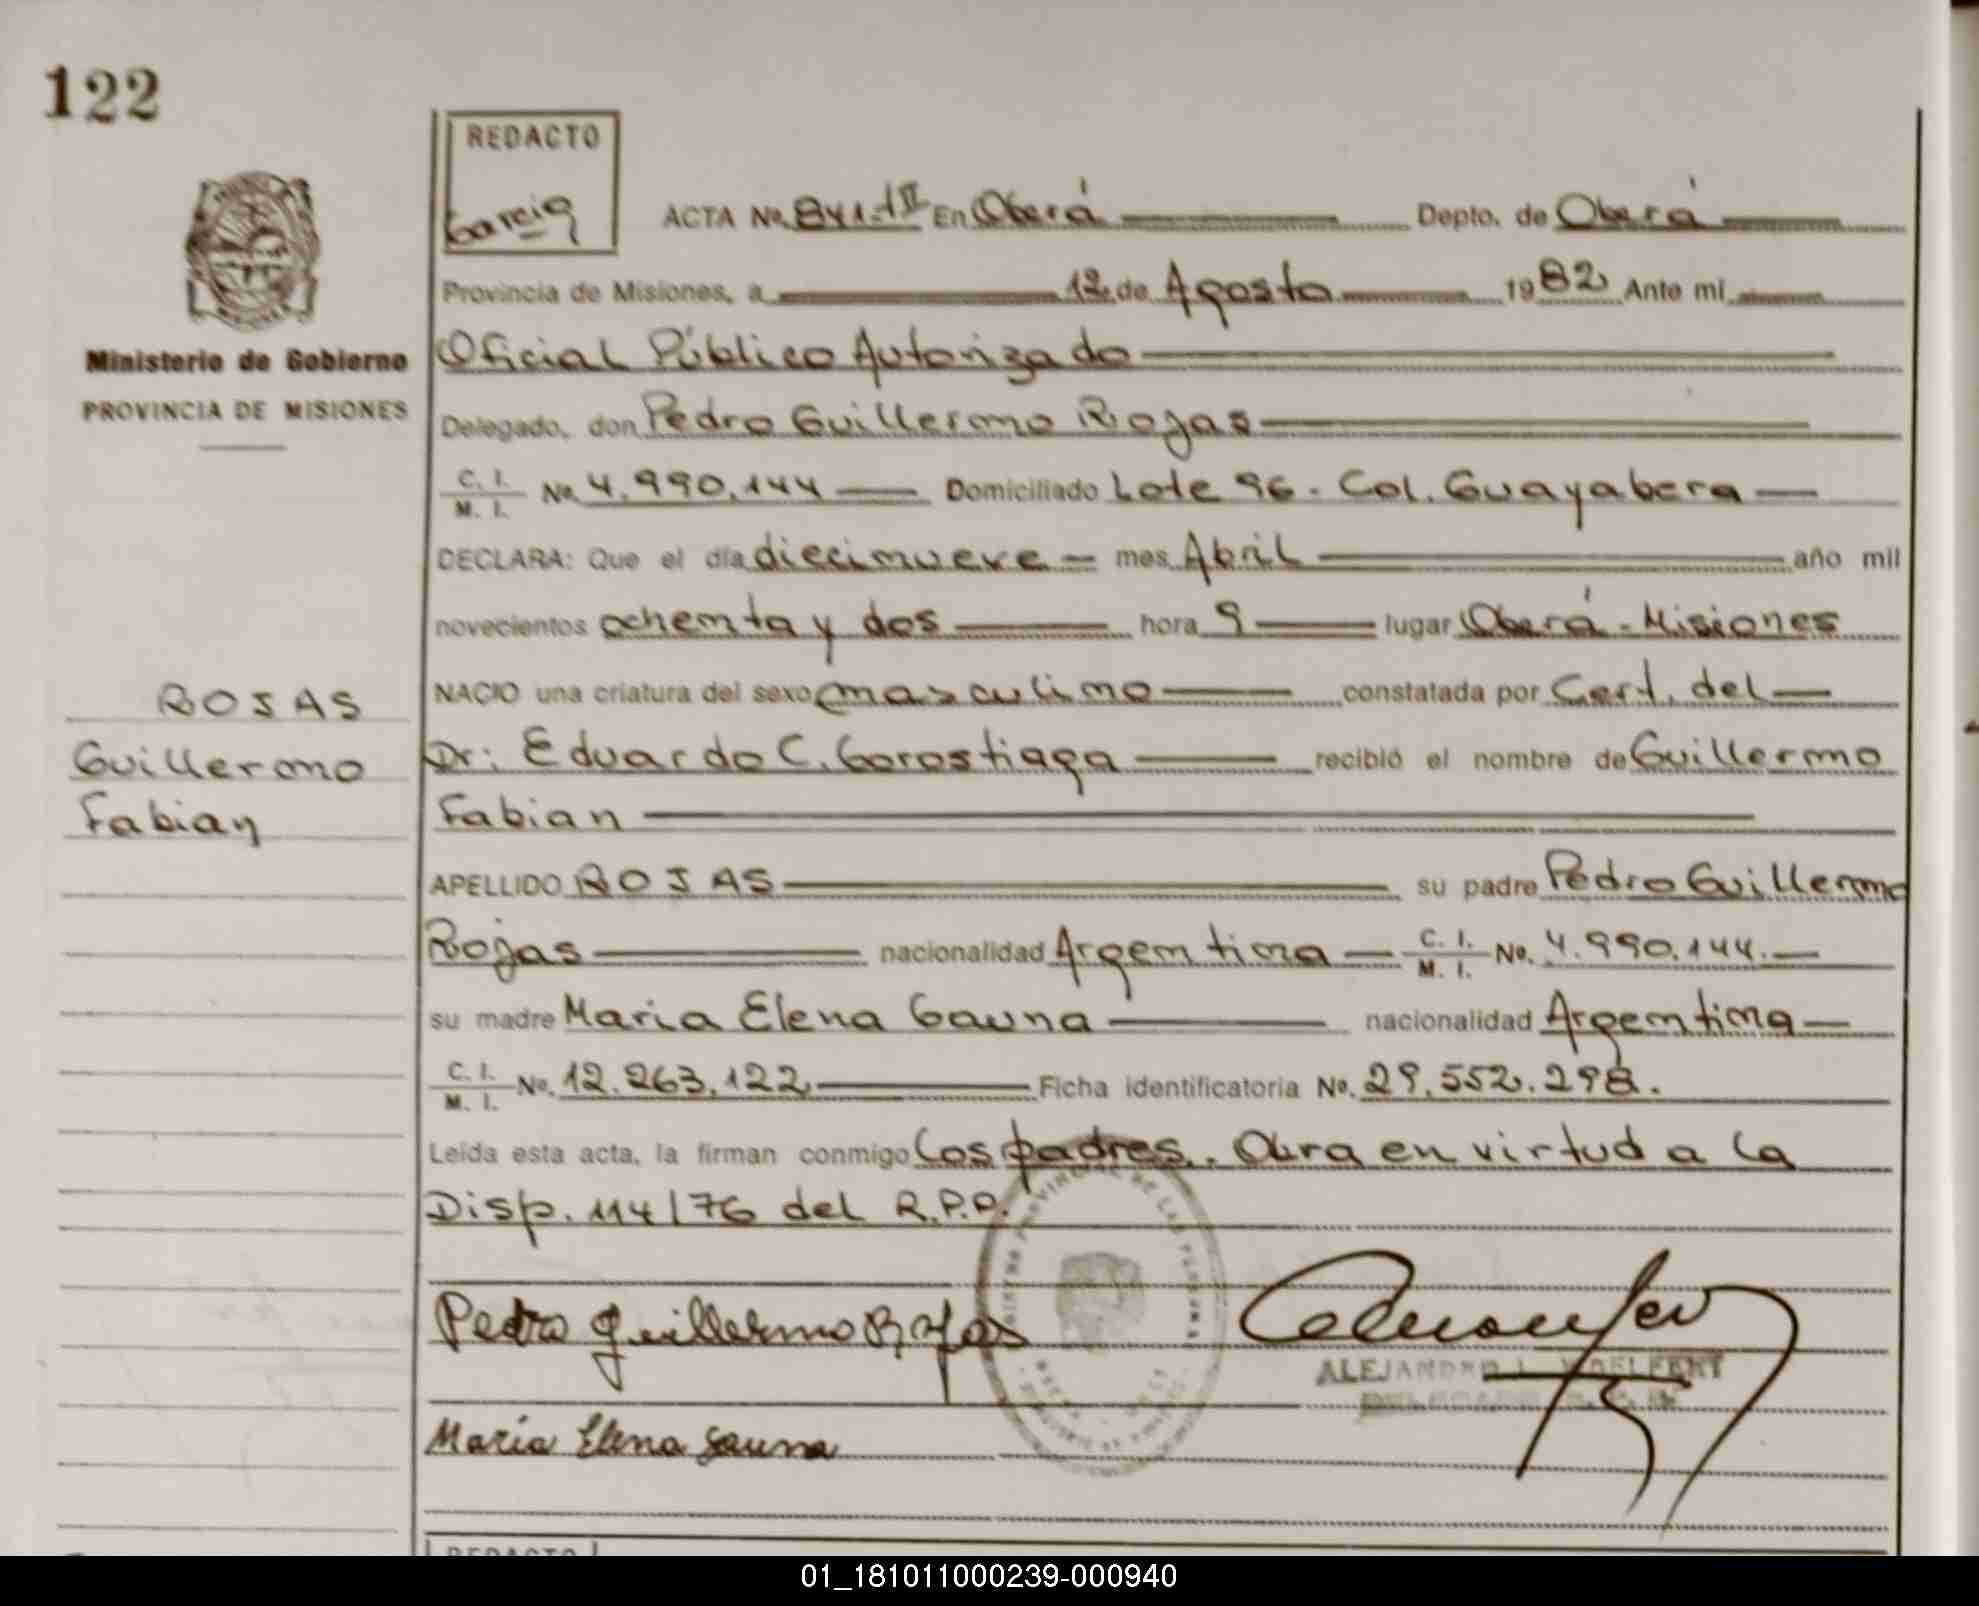 122
REDACTO
Garcia
ACTA No. 841-tII En Oberá Depto. de Oberá
Provincia de Misiones, a 12 de Agosto 1982 Ante mí
Ministerio de Gobierno
PROVINCIA DE MISIONES
Oficial Público Autorizado
Delegado, don Pedro Guillermo Rojas
C. I. M. I. No. 4.990.144 Domiciliado Lote 96 - Col. Guayabera
DECLARA: Que el día diecinueve mes Abril año mil
novecientos ochenta y dos hora 9 lugar Oberá - Misiones
NACIO una criatura del sexo masculino constatada por Cert. del
Dr: Eduardo C. Gorostiaga recibió el nombre de Guillermo
Fabian
ROJAS
Guillermo
Fabian
APELLIDO ROJAS su padre Pedro Guillermo
Rojas nacionalidad Argentina C. I. M. I. No. 4.990.144.
su madre Maria Elena Gauna nacionalidad Argentina
C. I. M. I. No. 12.263.122 Ficha identificatoria No. 29.552.298.
Leída esta acta, la firman conmigo los padres. Obra en virtud a la
Disp. 114/76 del R.P.P.
Pedro Guillermo Rojas
ALEJANDRO
Maria Elena Gauna
REDACTO
01_181011000239-000940